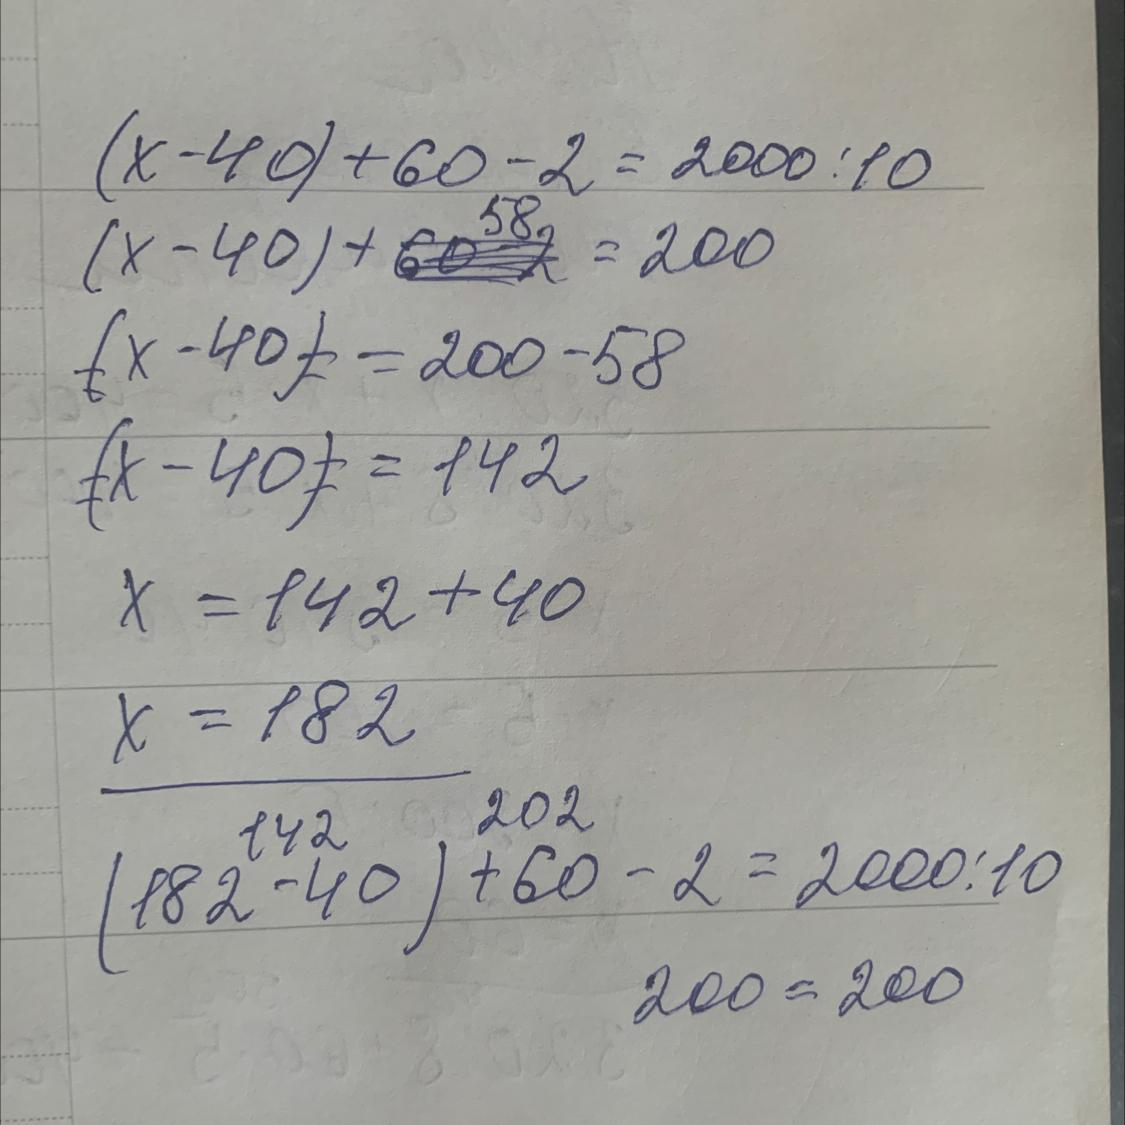 (x-40)+60-2=2000:10
58
(x-40)+60-2=200
(x-40)=200-58
(x-40)=142
x=142+40
x=182
142 202
(182-40)+60-2=2000:10
200=200